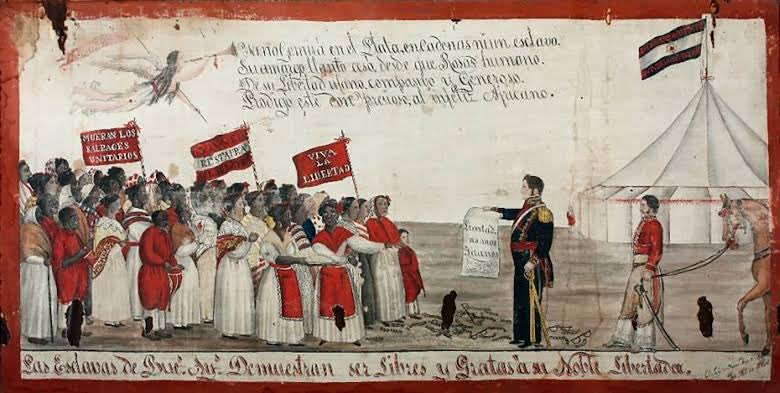 Ya no Gemirá en el Plata, en cadenas ni un esclavo.
Su amargo llanto cesó, desde que Rosas humano.
De su Libertad ufano, compasivo y Generoso.
Prodigó este don precioso, al infeliz Africano.
MUERAN LOS
SALBAGES
UNITARIOS
VIVA
LA
LIBERTAD
Livertad
Las Esclavas de Bue.s Ay.s Demuestran ser Libres y Gratas á su Noble Libertador.